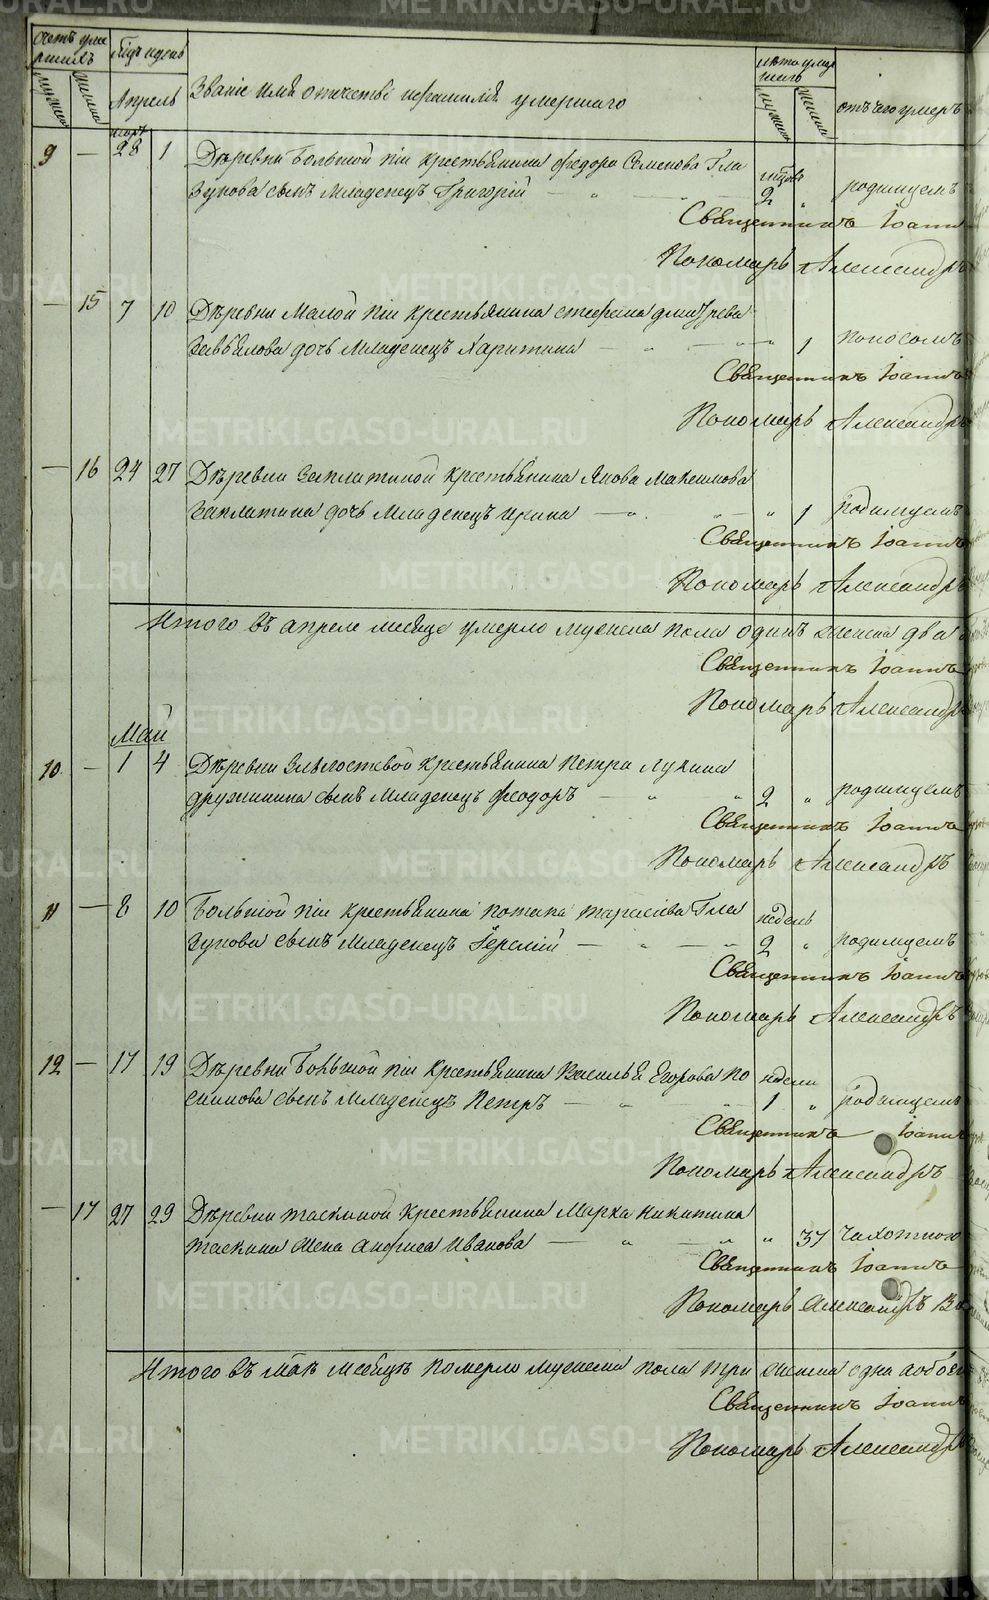 Счетъ уме
ршихъ
мужска
женска
Годъ и день
Апрель
Званіе имя отечество и фамилія умершаго
лѣта умер
шаго
мужска
женска
отъ чего умеръ
март
9 — 28 1 Дѣревни Большой піи крестьянина Федора Семенова Гла
зунова сынъ Младенецъ Григорій — „ — 2 „ родимцемъ
Священникъ Іоаннъ
Пономарь Александръ
— 15 7 10 Дѣревни Малой піи крестьянина стефана дмитрева
Завьялова дочь Младенецъ Харитина — „ — „ 1 поносомъ
Священникъ Іоаннъ
Пономарь Александръ
— 16 24 27 Дѣревни Заплатиной крестьянина Якова Максимова
Заплатина дочь Младенецъ Ирина — „ — „ 1 родимцемъ
Священникъ Іоаннъ
Пономарь Александръ
Итого въ апреле месяце умерло мужеска пола одинъ женска два
Священникъ Іоаннъ
Пономарь Александръ
Май
10 — 1 4 Дѣревни крестьянина Петра Лукина
дружинина сынъ Младенецъ Феодоръ — „ „ 2 „ родимцемъ
Священникъ Іоаннъ
Пономарь Александръ
11 — 8 10 Большой піи крестьянина Потапа тарасова Гла недель
зунова сынъ Младенецъ — „ — „ 2 „ родимцемъ
Священникъ Іоаннъ
Пономарь Александръ
12 — 17 19 Дѣревни Большой піи крестьянина Василья Егорова По недели
скимова сынъ Младенецъ Петръ — „ „ 1 „ родимцемъ
Священникъ Іоаннъ
Пономарь Александръ
— 17 27 29 Дѣревни таскиной крестьянина Марка Никитина
таскина жена Анфиса Иванова — „ — „ „ 37 чахоткою
Священникъ Іоаннъ
Пономарь Александръ
Итого въ маѣ месяцѣ померло мужеска пола три женска одна
Священникъ Іоаннъ
Пономарь Александръ
METRIKI.GASO-URAL.RU